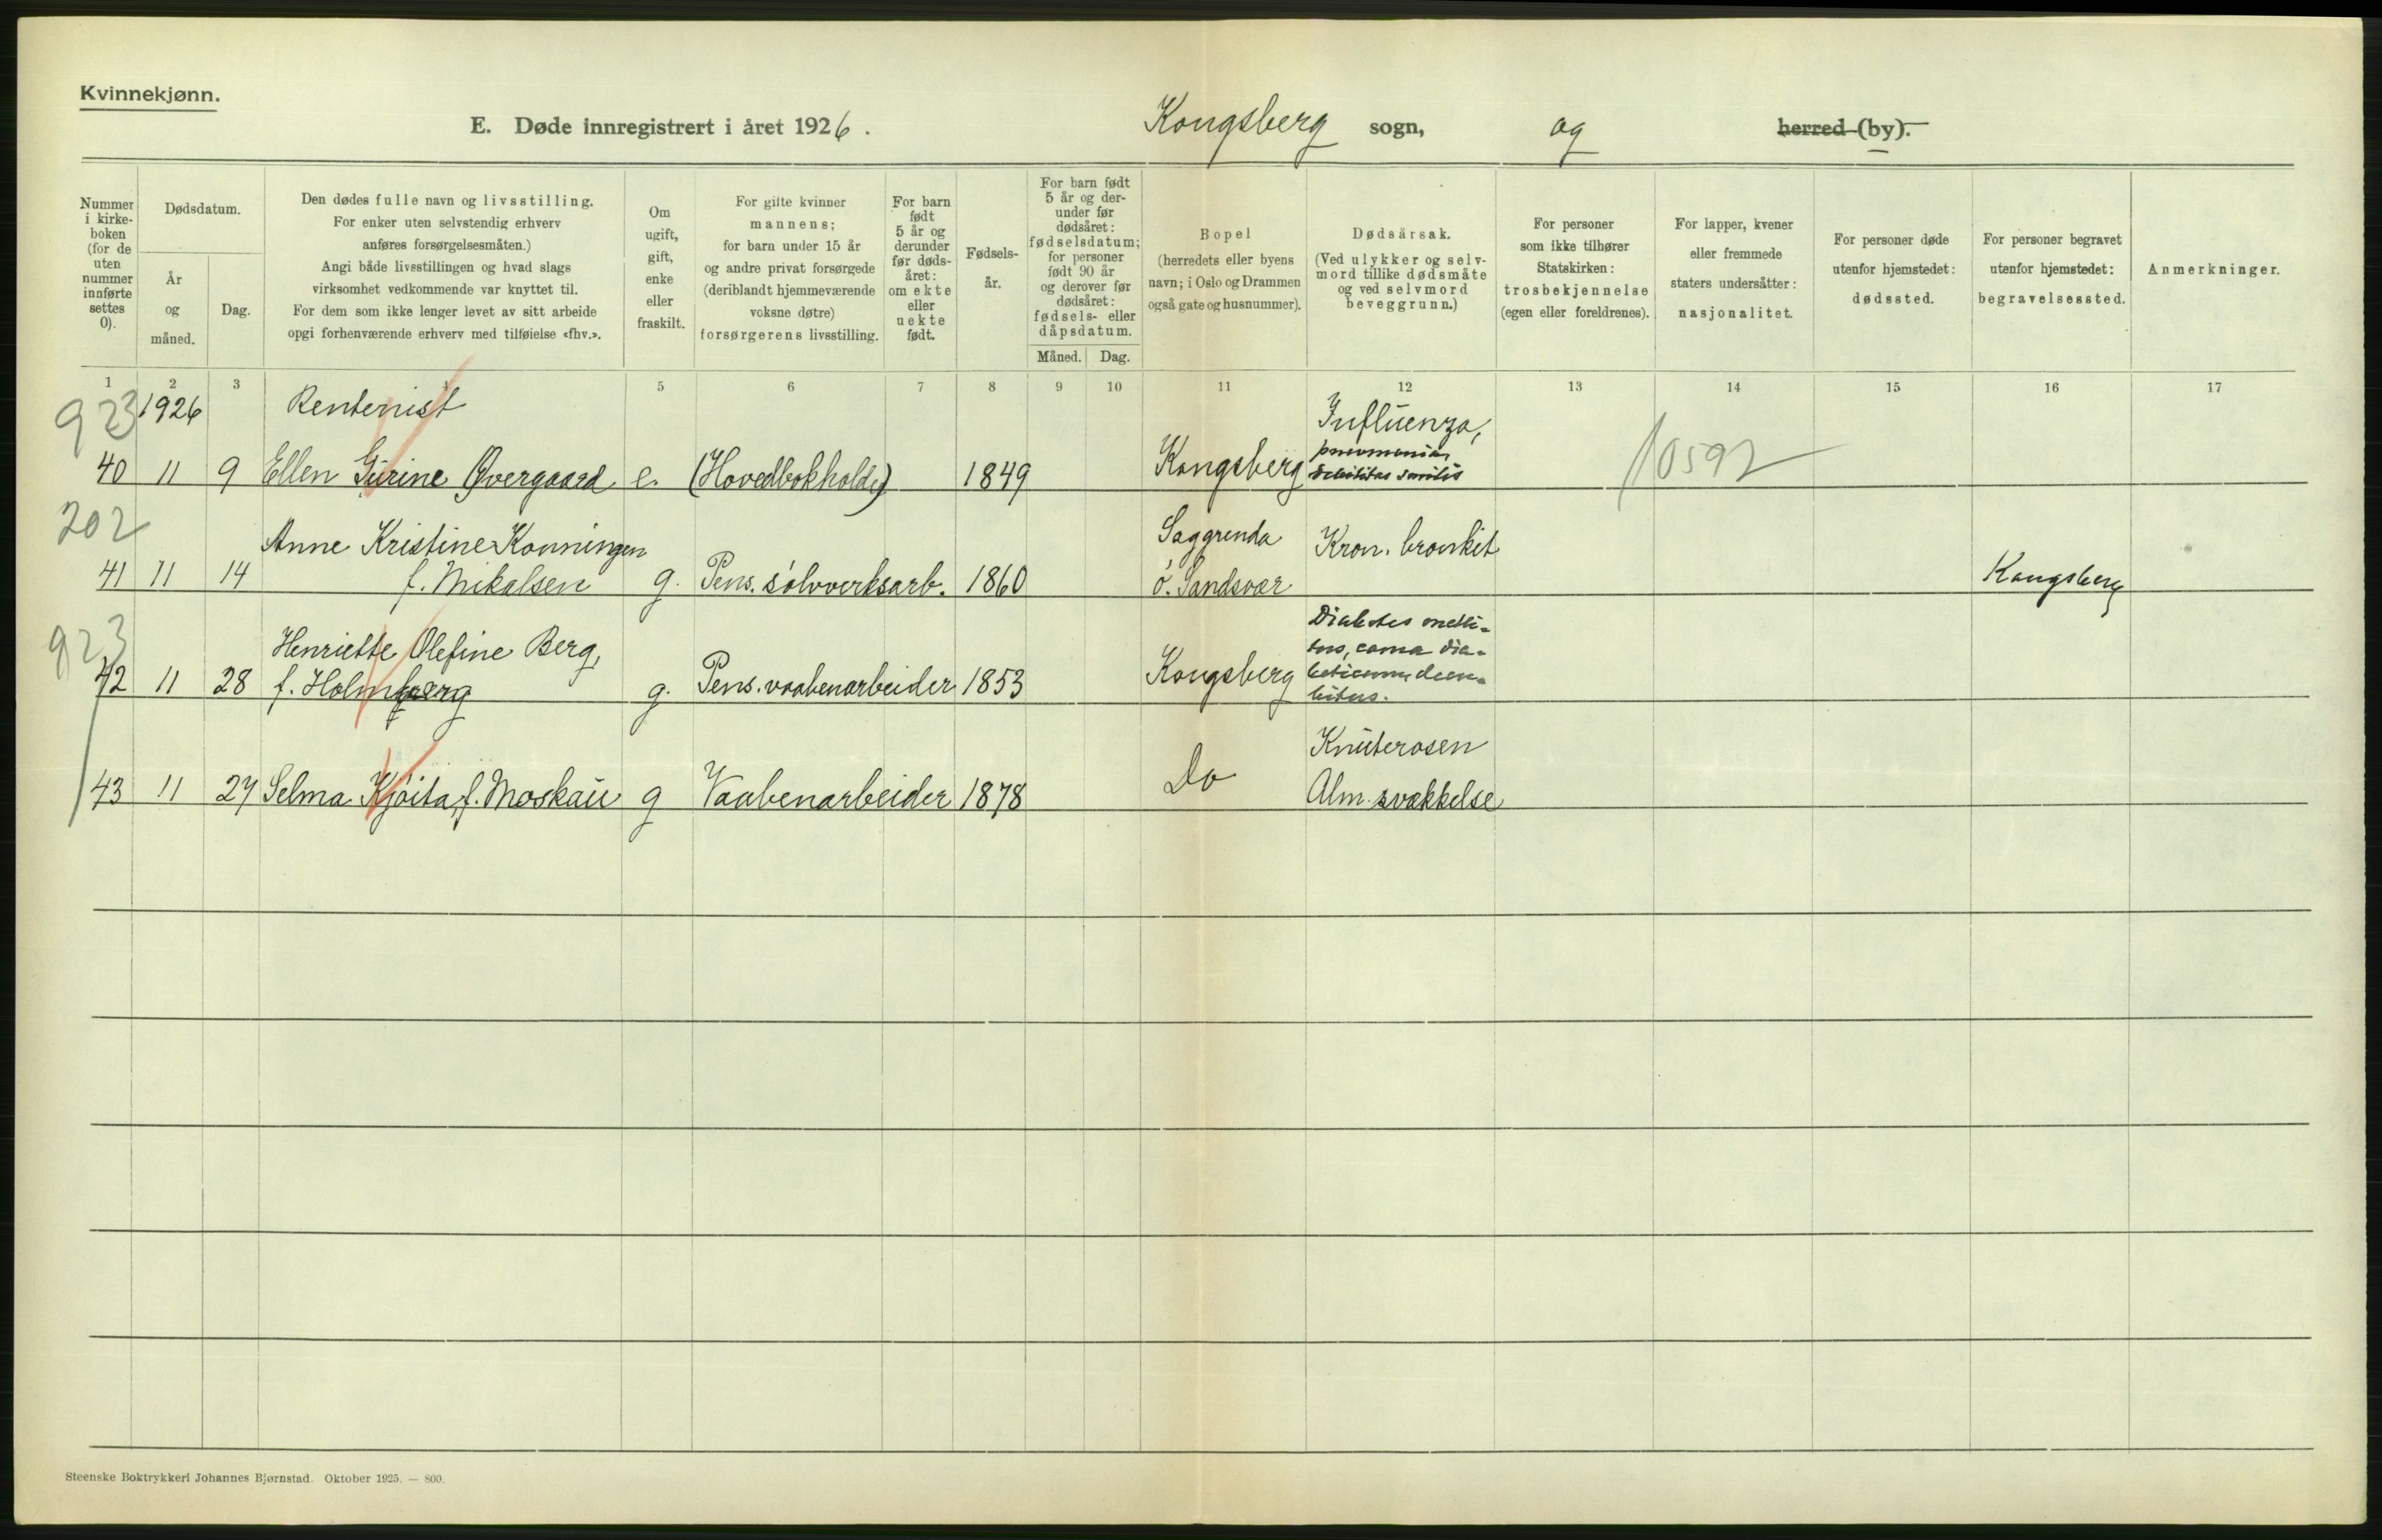 Kvinnekjønn.
E. Døde innregistrert i året 1926. Kongsberg sogn, og herred (by).
Nummer
i kirke-
boken
(for de
uten
nummer
innførte
settes
0).
Dødsdatum.
År
og
måned.
Dag.
Den dødes fulle navn og livsstilling.
For enker uten selvstendig erhverv
anføres forsørgelsesmåten.)
Angi både livsstillingen og hvad slags
virksomhet vedkommende var knyttet til.
For dem som ikke lenger levet av sitt arbeide
opgi forhenværende erhverv med tilføielse «fhv.».
Om
ugift,
gift,
enke
eller
fraskilt.
For gifte kvinner
mannens;
for barn under 15 år
og andre privat forsørgede
(deriblandt hjemmeværende
voksne døtre)
forsørgerens livsstilling.
For barn
født
5 år og
derunder
før døds-
året:
om ekte
eller
uekte
født.
Fødsels-
år.
For barn født
5 år og der-
under før
dødsåret:
fødselsdatum;
for personer
født 90 år
og derover før
dødsåret:
fødsels- eller
dåpsdatum.
Måned. Dag.
Bopel
(herredets eller byens
navn; i Oslo og Drammen
også gate og husnummer).
Dødsårsak.
(Ved ulykker og selv-
mord tillike dødsmåte
og ved selvmord
beveggrunn.)
For personer
som ikke tilhører
Statskirken:
trosbekjennelse
(egen eller foreldrenes).
For lapper, kvener
eller fremmede
staters undersåtter:
nasjonalitet.
For personer døde
utenfor hjemstedet:
dødssted.
For personer begravet
utenfor hjemstedet:
begravelsessted.
Anmerkninger.
1 2 3 4 5 6 7 8 9 10 11 12 13 14 15 16 17
923 1926 Rentenist Influenza,
40 11 9 Ellen Gurine Øvergaard e. (Hovedbokholder) 1849 Kongsberg pneumonia, 10592
debilitas senilis
202 Anne Kristine Konningen Saggrenda Kron. bronkit
41 11 14 f. Mikalsen g. Pens. sølvverksarb. 1860 ö. Sandsvær Kongsberg
923 Henriette Olefine Berg, Diabetes melli-
tus, coma dia-
42 11 28 f. Holmberg g. Pens. vaabenarbeider 1853 Kongsberg beticum, decu-
bitus.
Knuterosen
43 11 27 Selma Kjöita, f. Moskau g Vaabenarbeider 1878 Do Alm. svækkelse
Steenske Boktrykkeri Johannes Bjørnstad. Oktober 1925. — 800.